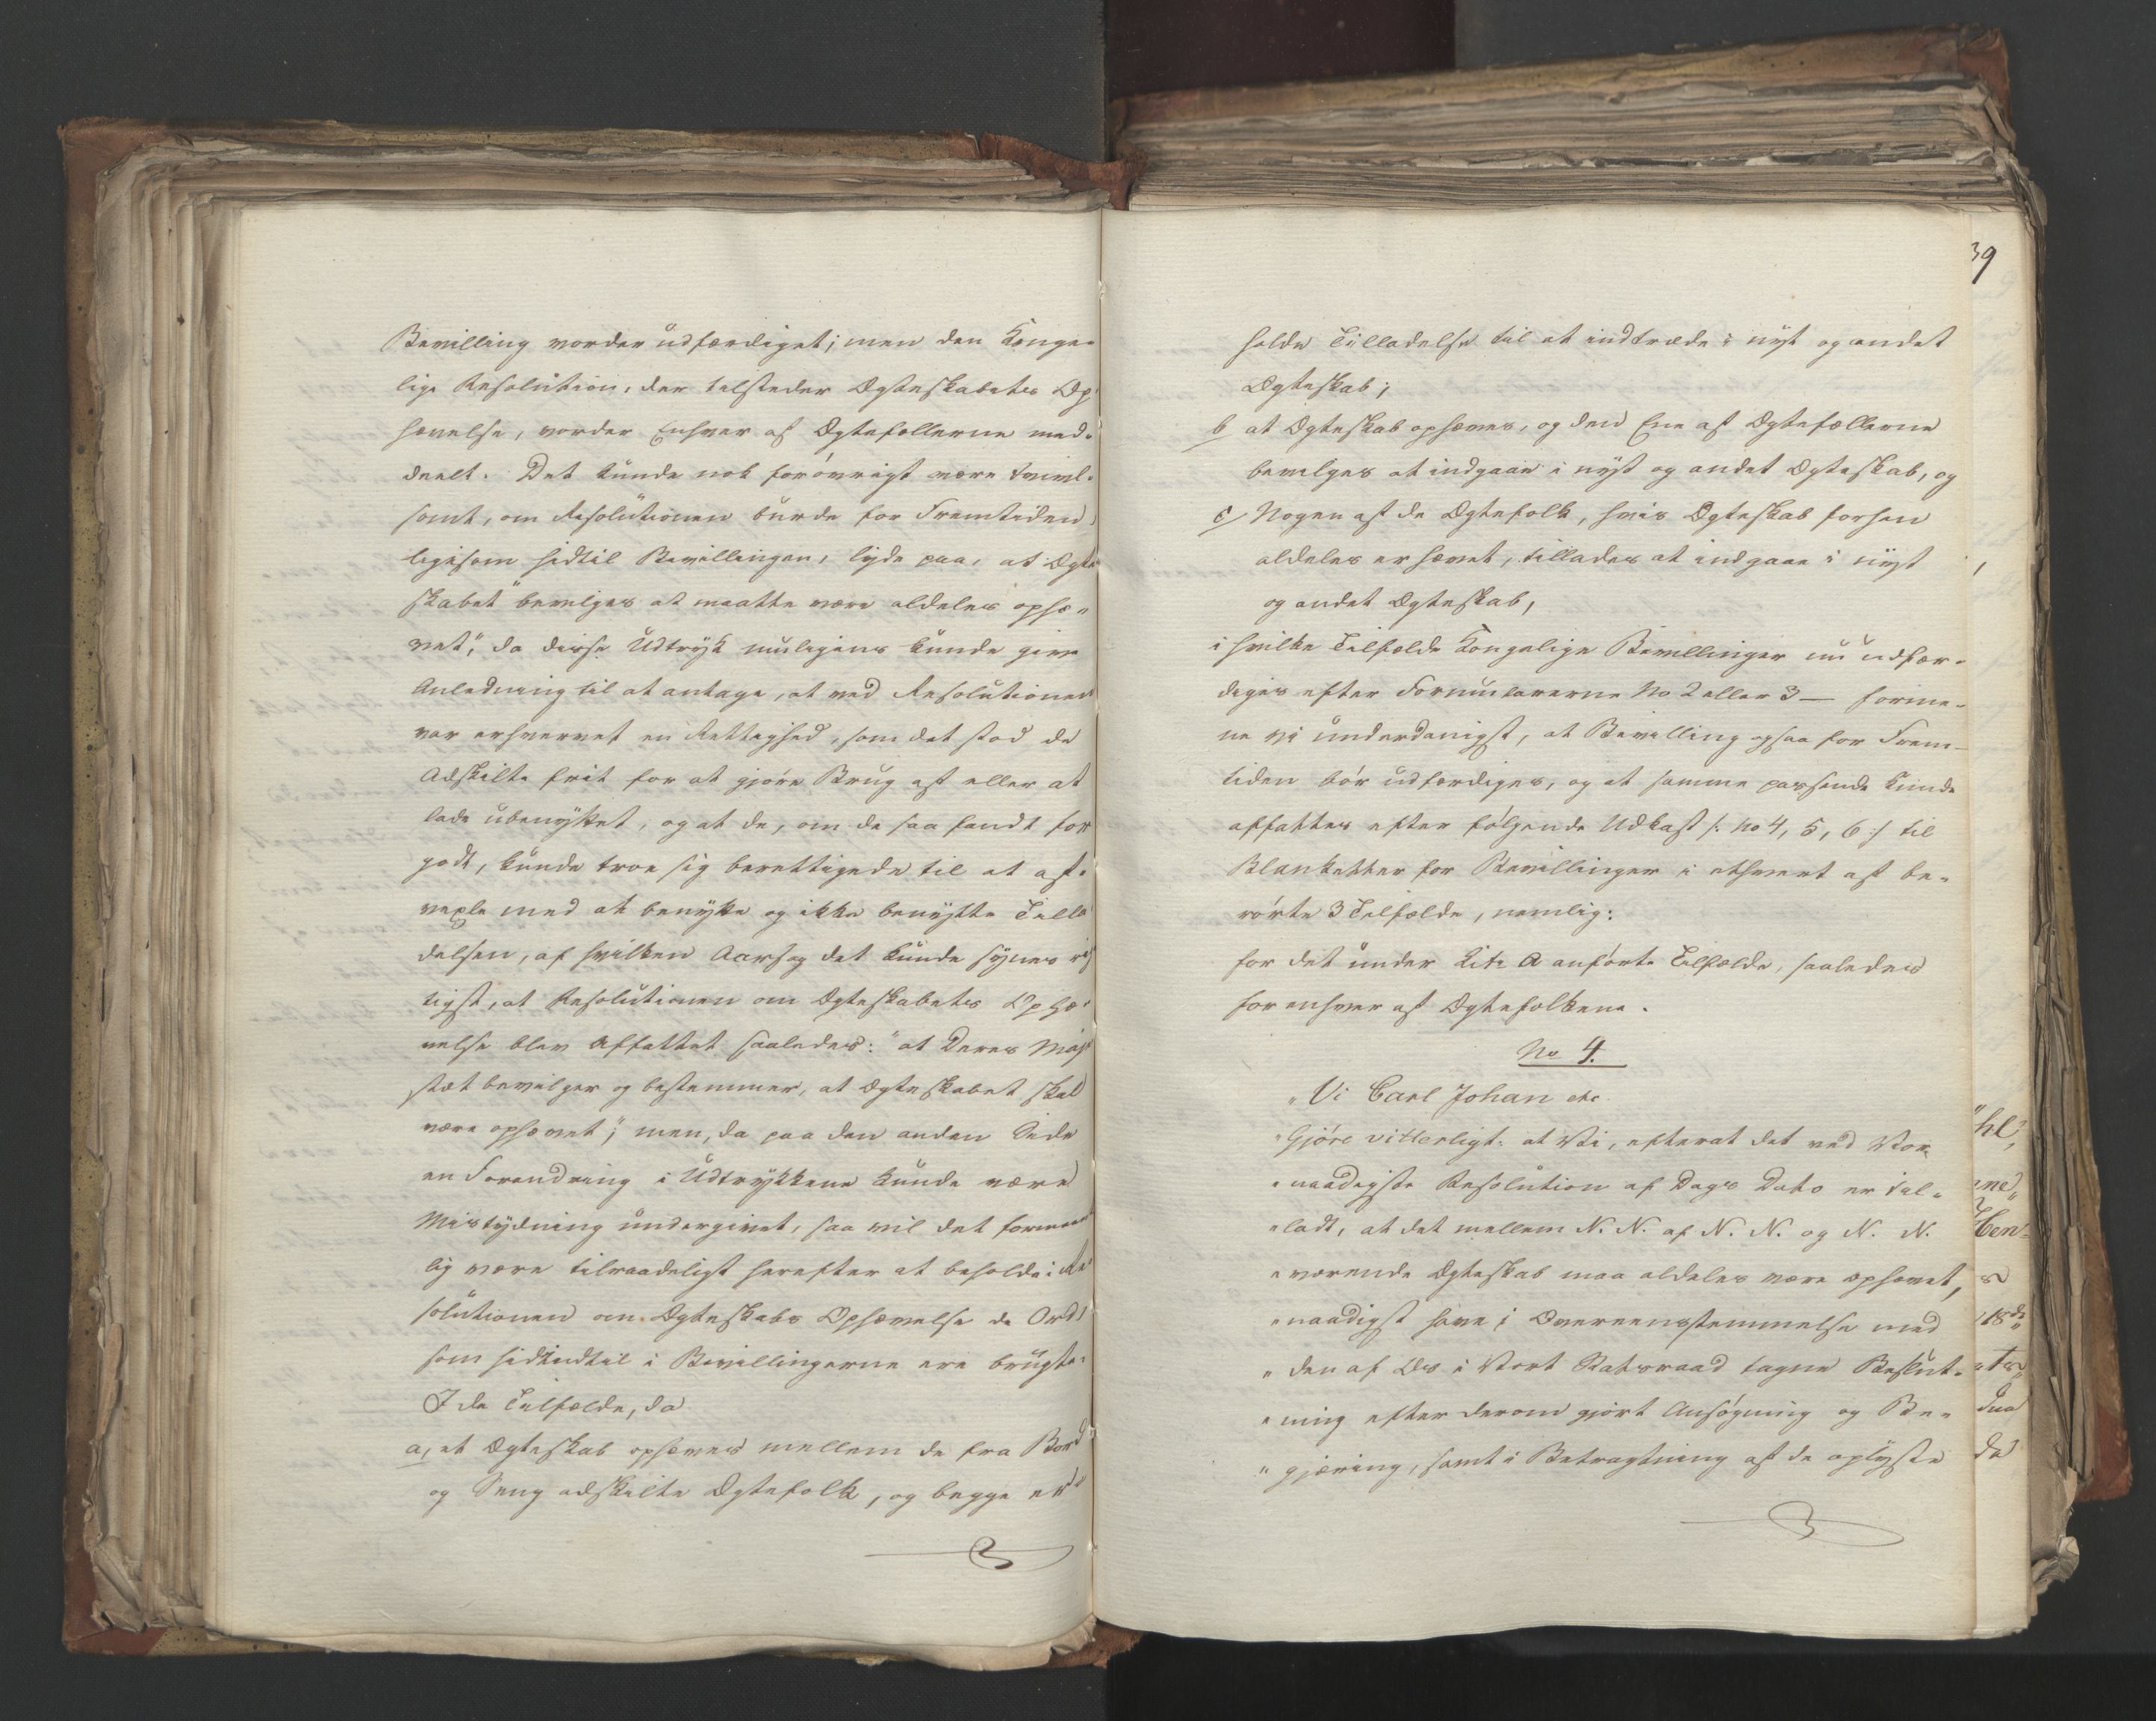 Bevilling vorder udfærdiget; men den Konge-
lige Resolution, der tilsteder Ægteskabets Op-
hævelse, vorder Enhver af Ægtefællerne med-
deelt. Det kunde nok forøvrigt være tvivl-
somt, om Resolutionen burde for Fremtiden,
ligesom hidtil Bevillingen, lyde paa, at Ægte
skabet "bevilges at maatte være aldeles ophæ-
vet", da disse Udtryk muligens kunde give
Anledning til at antage, at ved Resolutionen
var erhvervet en Rettighed, som det stod de
Adskilte frit for at gjøre Brug af eller at
lade ubenyttet, og at de, om de saa fandt for
godt, kunde troe sig berettigede til at af-
vexle med at benytte og ikke benytte Tilla
delsen, af hvilken Aarsag det kunde synes rig
tigst, at Resolutionen om Ægteskabets Ophæ-
velse blev affattet saaledes: "at Deres Maje
stæt bevilger og bestemmer, at Ægteskabet skal
være ophævet"; men, da paa den anden Side
en Forandring i Udtrykkene kunde være
Mistydning undergivet, saa vil det formeent
lig være tilraadeligst herefter at beholde i Re
solutionen om Ægteskabs Ophævelse de Ord,
som hidindtil i Bevillingerne ere brugte.
I de Tilfælde, da
a, et Ægteskab ophæves mellem de fra Bord
og Seng adskilte Ægtefolk, og begge erde
39
holde Tilladelse til at indtræde i nyt og andet
Ægteskab;
b at Ægteskab ophæves, og den Ene af Ægtefællerne
bevilges at indgaae i nyt og andet Ægteskab, og
c Nogen af de Ægtefolk, hvis Ægteskab forhen
aldeles er hævet, tillades at indgaae i nyt
og andet Ægteskab,
i hvilke Tilfælde Kongelige Bevillinger nu udfær-
diges efter Formularerne No 2 eller 3 — formee-
ne vi underdanigst, at Bevilling ogsaa for Frem-
tiden bør udfærdiges, og at samme passende kunde
affattes efter følgende Udkast /: No 4, 5, 6 :/ til
Blanketter for Bevillinger i ethvert af be-
rørte 3 Tilfælde, nemlig:
for det under Litr a anførte Tilfælde, saaledes
for enhver af Ægtefolkene.
No 4.
"Vi Carl Johan etc
"Gjøre vitterligt: at Vi, efterat det ved Vor
"naadigste Resolution af Dags Dato er til-
"ladt, at det mellem N. N. af N. N. og N. N.
"værende Ægteskab maa aldeles være ophævet,
"naadigst have i Overeensstemmelse med
"den af Os i Vort Statsraad tagne Beslut-
"ning efter derom gjort Ansøgning og Be-
"gjæring, samt i Betragtning af de oplyste